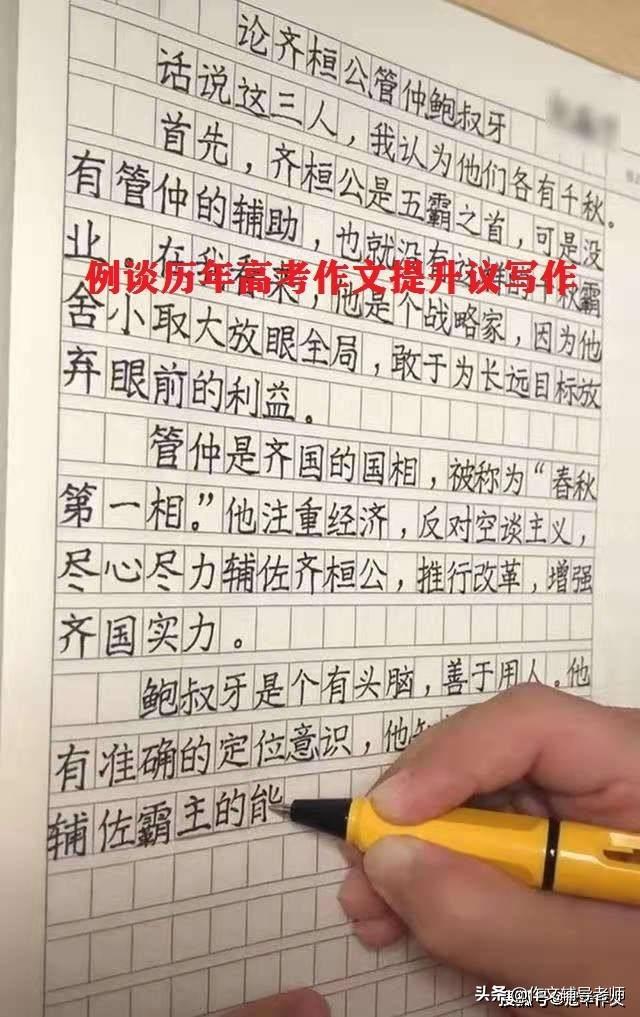 论齐桓公管仲鲍叔牙
话说这三人，我认为他们各有千秋。
首先，齐桓公是五霸之首，可是没
有管仲的辅助，也就没有 的 秋霸
业。在我看来，他是个战略家，因为他
例谈历年高考作文提升议写作
舍小取大放眼全局，敢于为长远目标放
弃眼前的利益。
管仲是齐国的国相，被称为“春秋
第一相。”他注重经济，反对空谈主义，
尽心尽力辅佐齐桓公，推行改革，增强
齐国实力。
鲍叔牙是个有头脑，善于用人。他
有准确的定位意识，他知
辅佐霸主的能
头条@作文辅导老师
搜狐号@